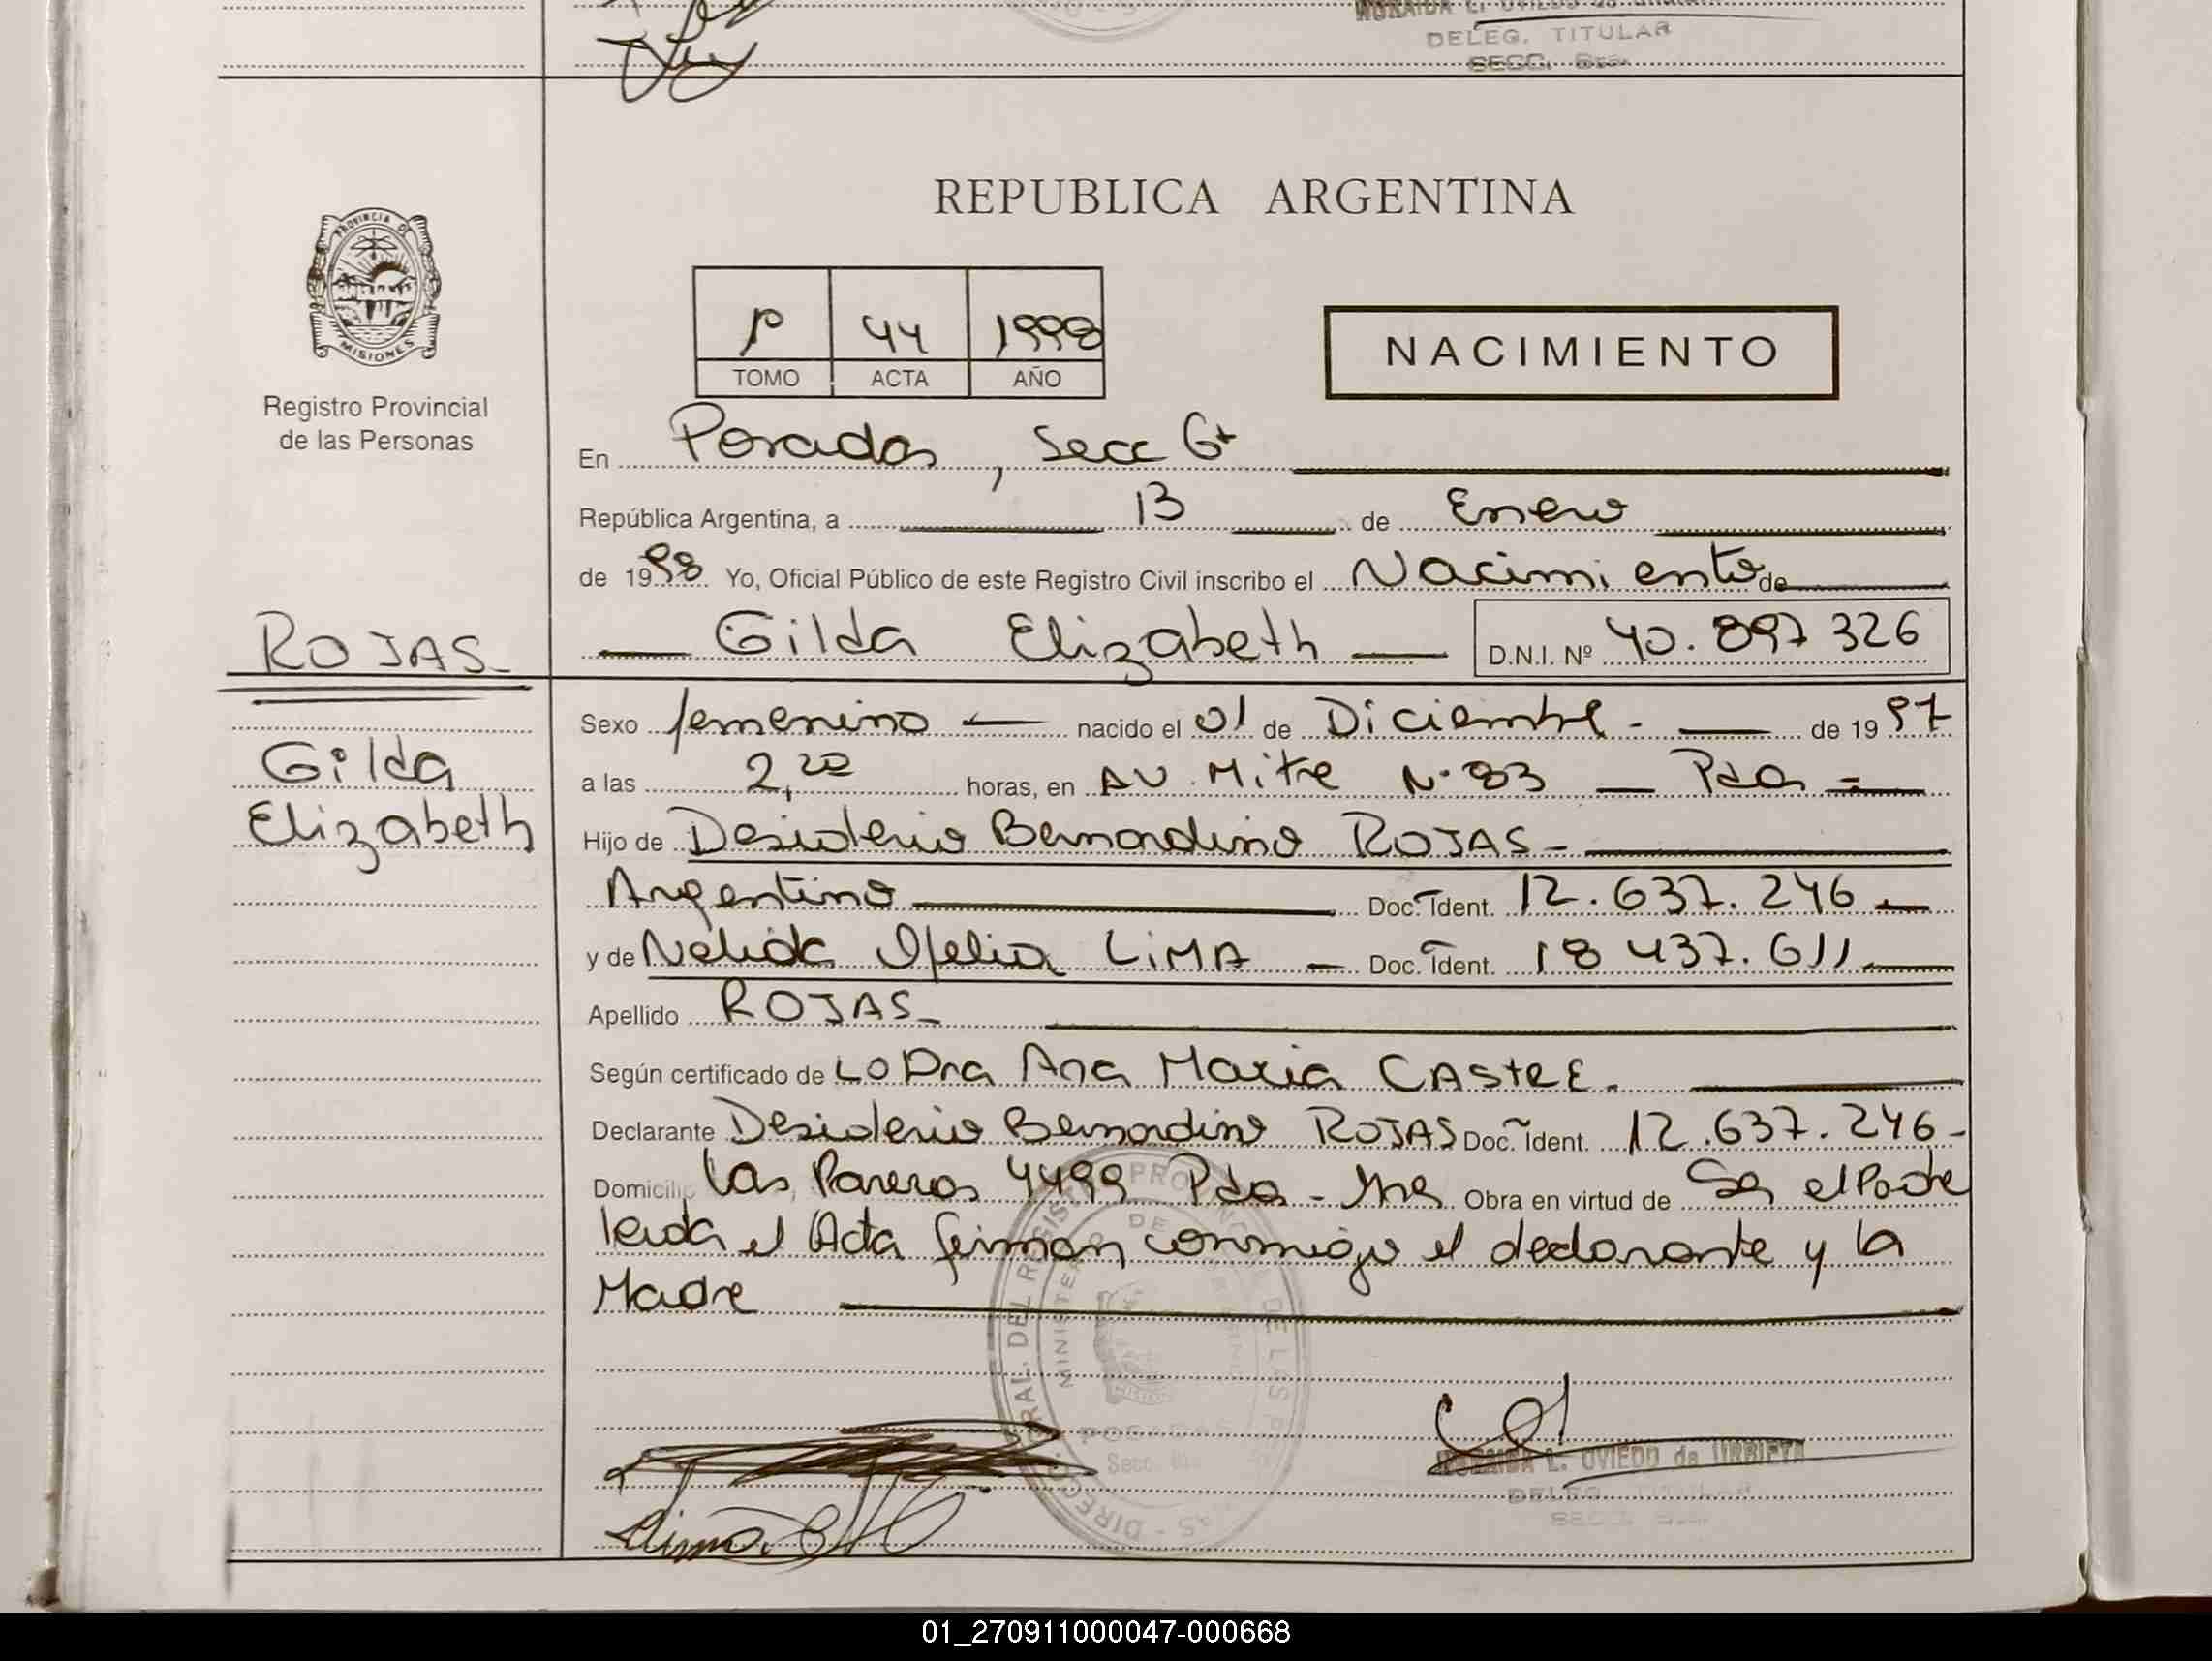 DELEG. TITULAR
SECC.
REPUBLICA ARGENTINA
PROVINCIA DE
MISIONES
Registro Provincial
de las Personas
44 1998
TOMO ACTA AÑO
NACIMIENTO
En Posadas, Secc 6ta
República Argentina, a 13 de Enero
de 1998 Yo, Oficial Público de este Registro Civil inscribo el Nacimiento de
Gilda Elizabeth D.N.I. Nº 40.897 326
ROJAS
Gilda
Elizabeth
Sexo femenino nacido el 01 de Diciembre - de 1997
a las 2,20 horas, en AV. Mitre Nº 83 Pdas
Hijo de Desiderio Bernardino ROJAS
Argentino Doc. Ident. 12.637.246
y de Nelida Ofelia LIMA Doc. Ident. 18 437.611
Apellido ROJAS
Según certificado de LA Dra Ana Maria CASTRE.
Declarante Desiderio Bernardino ROJAS Doc. Ident. 12.637.246
Domicilio Las 4499 Pdas - Mnes Obra en virtud de Ser el Padre
leida el Acta firman conmigo el declarante y la
Madre
POSADAS
Lima
L. OVIEDO de URBIETA
DELEG. TITULAR
01_270911000047-000668